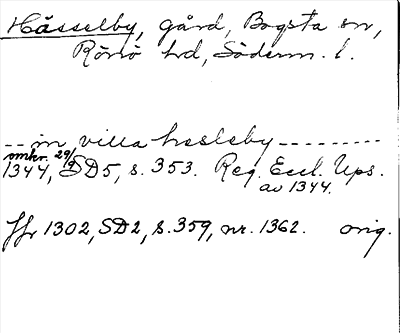 Hässelby, gård, Bogsta sn,
Rönö hd, Söderm. l.
-- in villa hesleby ---------
omkr. 29/9
1344, SD5, s. 353. Reg. Eccl. Ups.
av 1344.
Jfr 1302, SD2, s. 359, nr. 1362. orig.